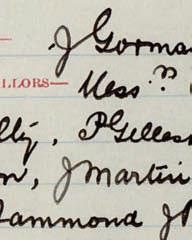 J Gorma
LLORS— Mess.rs
lly, P Gilles
n, J Martin
Hammond J P